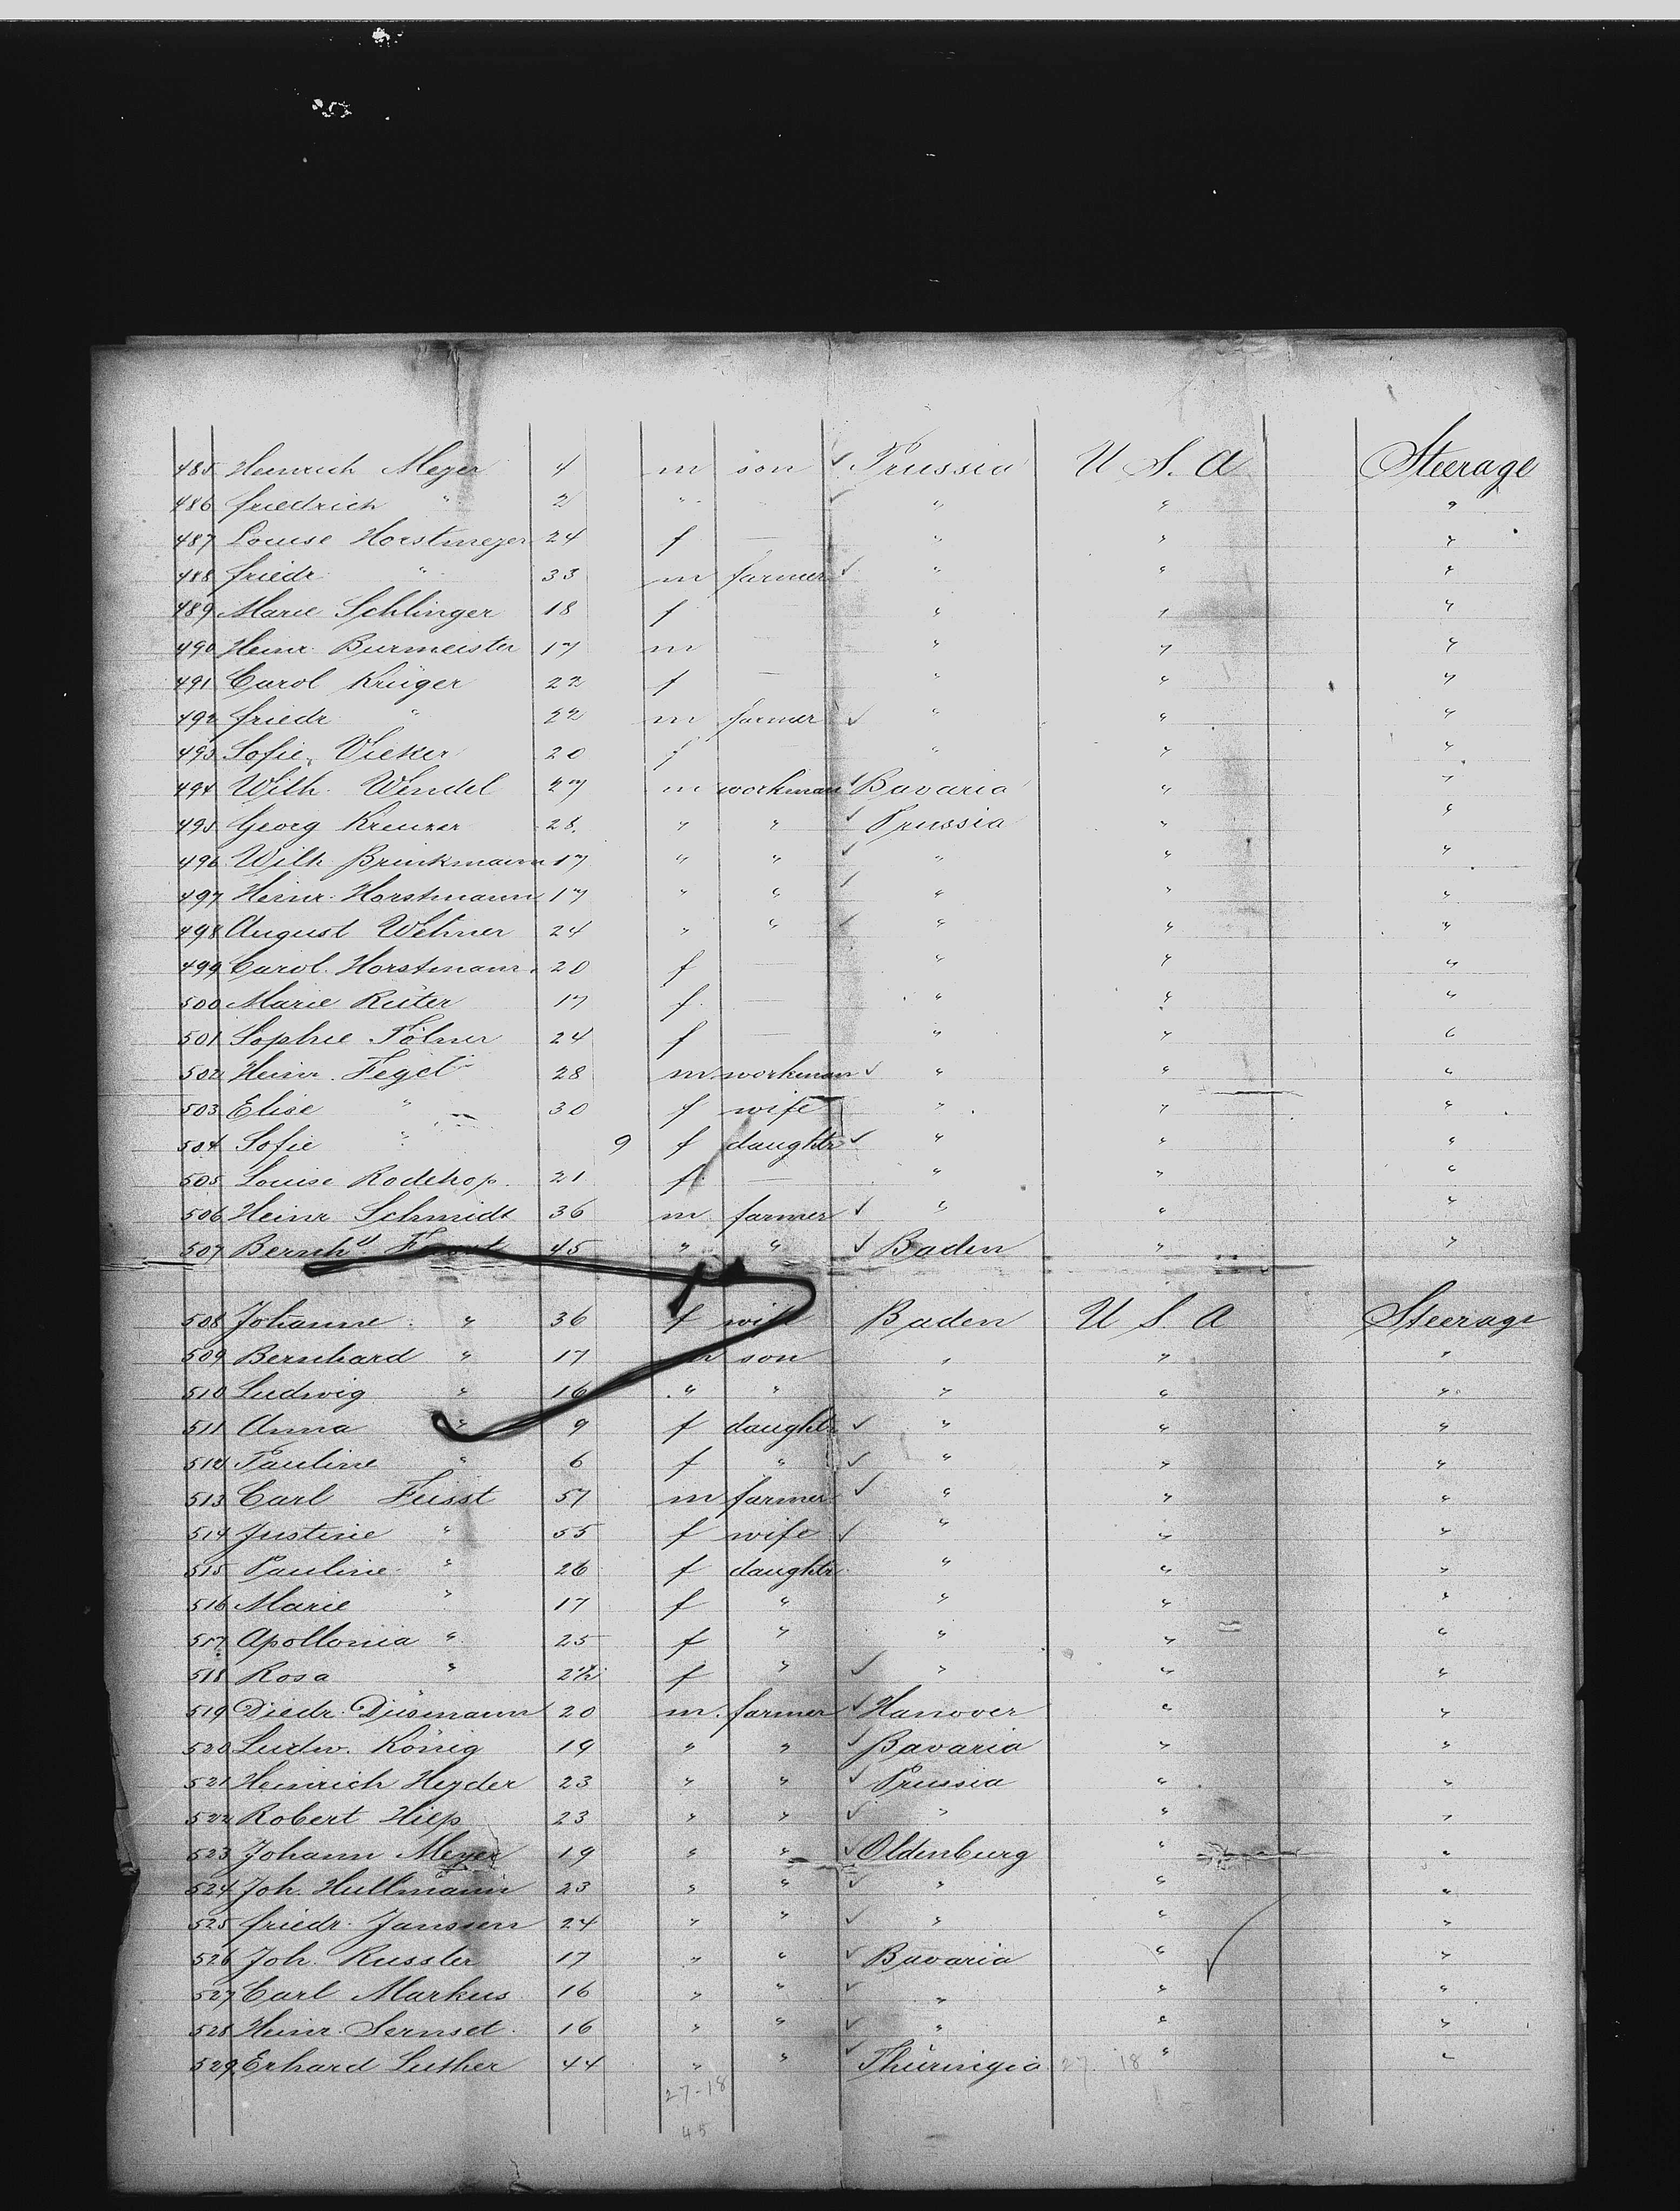 485 Heinrich Meyer 4 m son ✓ Prussia U S. A Steerage
486 Friedrich " 2 " - ✓ " " "
487 Louise Horstmeyer 24 f — " " "
488 Friedr. " 33 m farmer ✓ " " "
489 Marie Schlinger 18 f " " "
490 Heinr. Burmeister 17 m " " "
491 Carol Krüger 22 f — " " "
492 Friedr. " 22 m farmer ✓ " " "
493 Sofie Vieker 20 f " " "
494 Wilh. Wendel 27 m workman ✓ Bavaria " "
495 Georg 28 " " ✓ Prussia " "
496 Wilh. Brinkmann 17 " " ✓ " " "
497 Heinr. Horstmann 17 " " ✓ " " "
498 August Wehner 24 " " ✓ " " "
499 Carol. Horstmann 20 f — " " "
500 Marie Rüter 17 f. — " " "
501 Sophie 24 f — " " "
502 Heinr. Fegel 28 m. workman ✓ " " "
503 Elise " 30 f wife " " "
504 Sofie " 9 f daughtr ✓ " " "
505 Louise Rodehop. 21 f. — " " "
506 Heinr Schmidt 36 m farmer ✓ " " "
507 Bernhd 45 " " ✓ Baden " "
508 Johanne " 36 f wife Baden U S. A Steerage
509 Bernhard " 17 m son " " "
510 Ludwig " 16 " " " " "
511 Anna " 9 f daughtr ✓ " " "
512 Pauline " 6 f " ✓ " " "
513 Carl Feisst 57 m farmer ✓ " " "
514 Justine " 55 f wife ✓ " " "
515 Pauline " 26 f daughtr " " "
516 Marie " 17 f " " " "
517 Apollonia " 25 f " " " "
518 Rosa " 2½ f " ✓ " " "
519 Diedr. Düsmann 20 m. farmer ✓ Hanover " "
520 Ludw. König 19 " " ✓ Bavaria " "
521 Heinrich Heyder 23 " " ✓ Prussia " "
522 Robert Hiep 23 " " ✓ " " "
523 Johann Meyer 19 " " ✓ Oldenburg " "
524 Joh. Hullmann 23 " " ✓ " " "
525 Friedr. Janssen 24 " " ✓ " " "
526 Joh. Russler 17 " " ✓ Bavaria " "
527 Carl Markus 16 " " ✓ " " "
528 Heinr. Sernset 16 " " ✓ " " "
529 Erhard Luther 44 " " ✓ Thüringia 27 18 " "
27-18
45